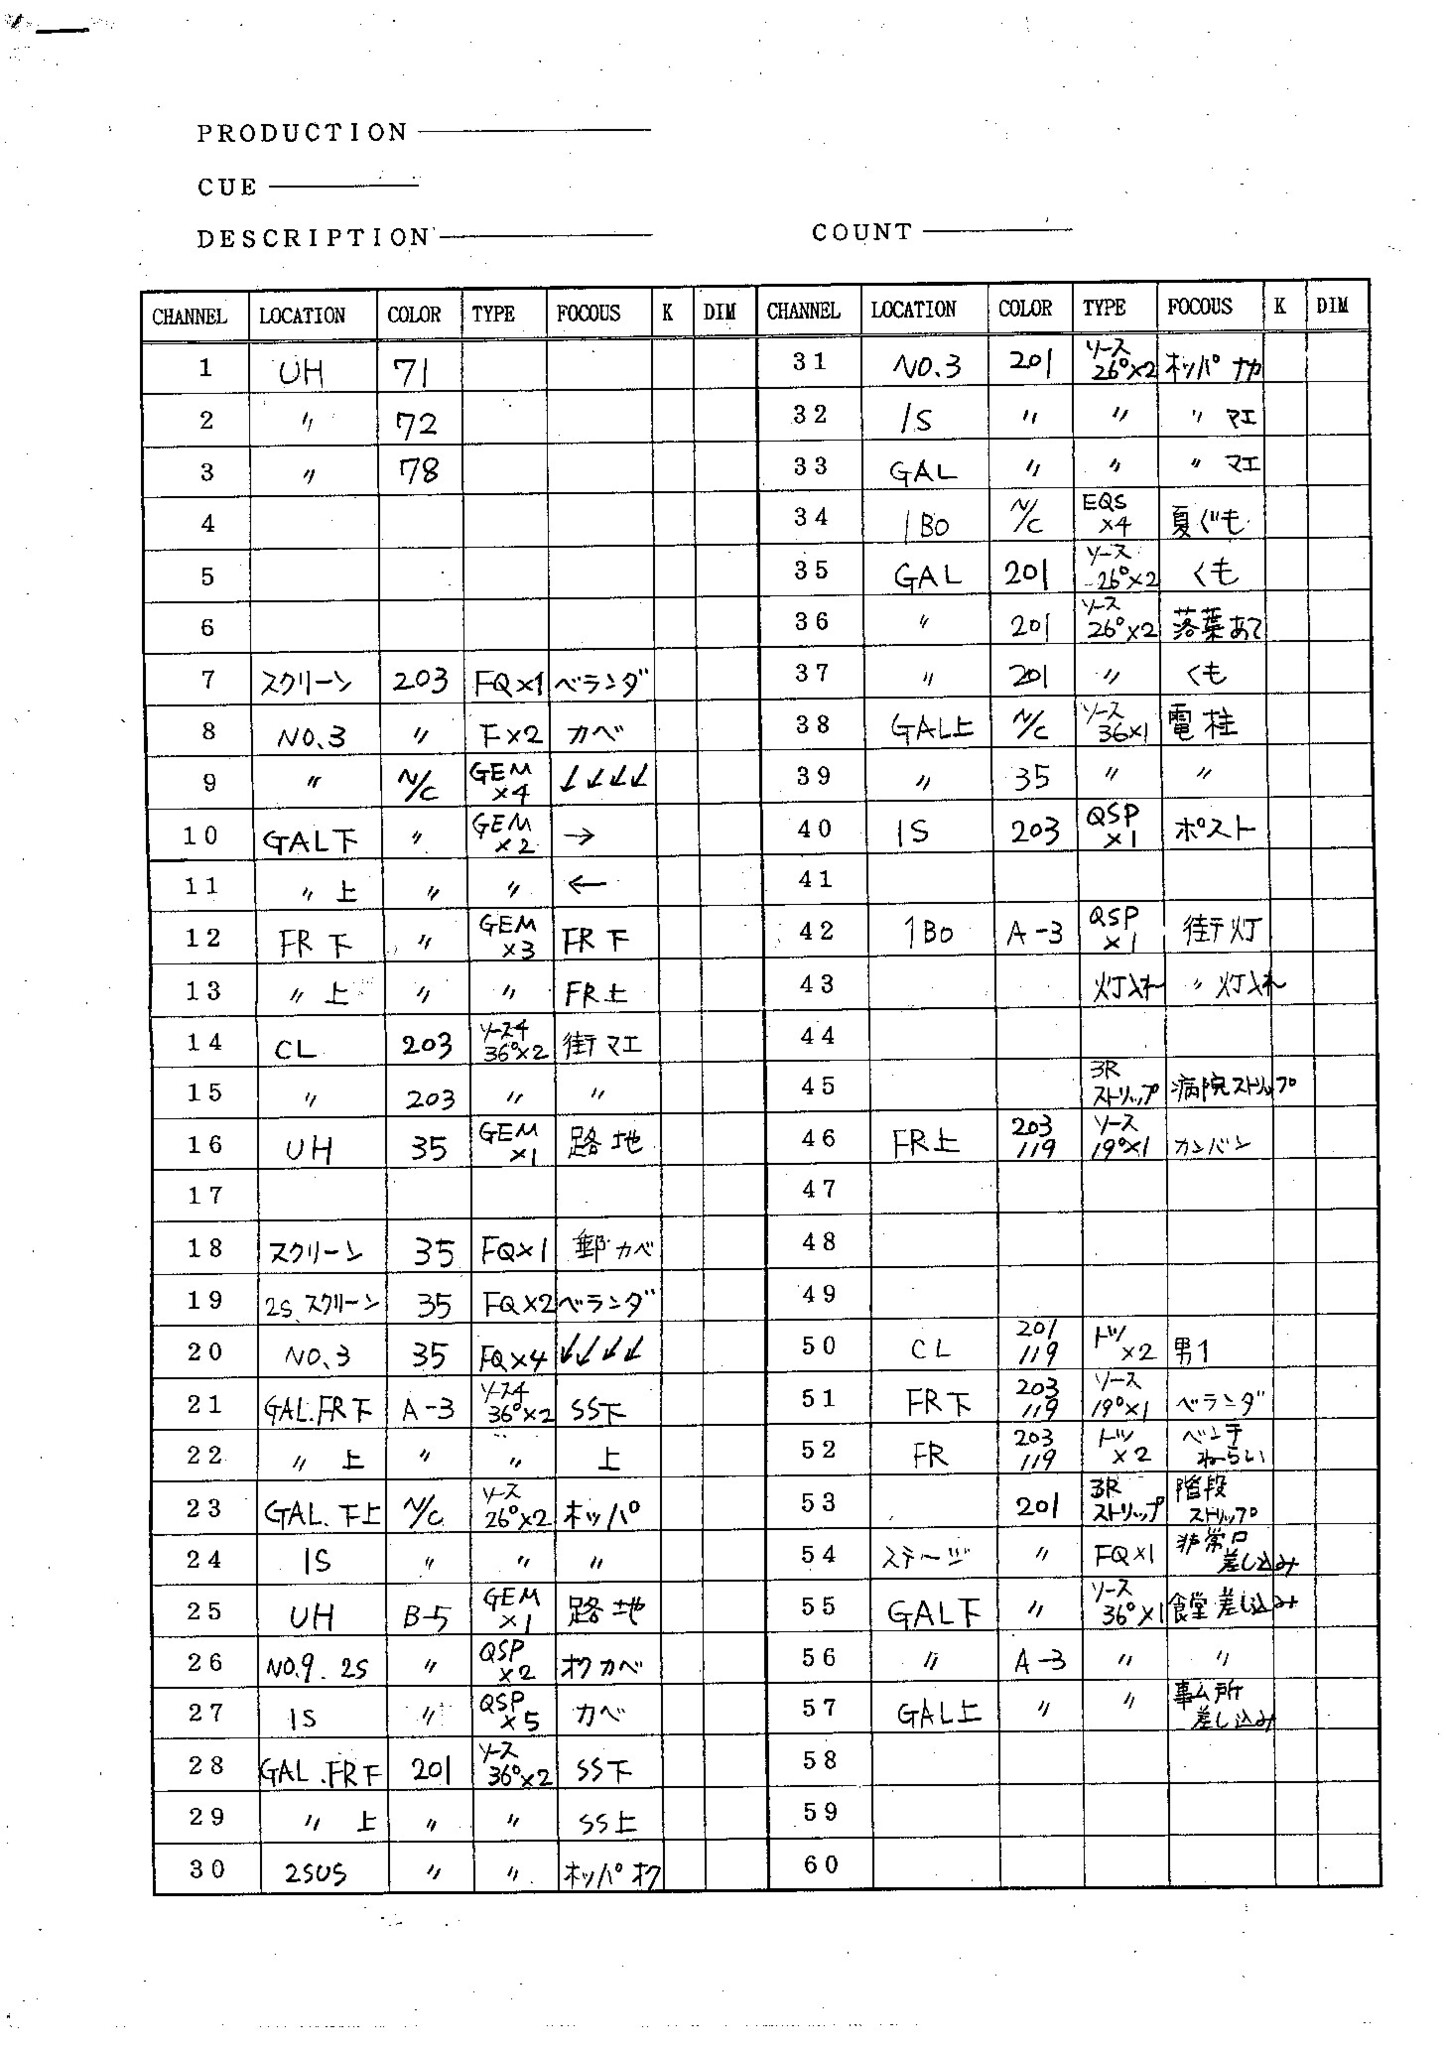 PRODUCTION
CUE
DESCRIPTION COUNT
CHANNEL LOCATION COLOR TYPE FOCOUS K DIM CHANNEL LOCATION COLOR TYPE FOCOUS K DIM
1 UH 71 31 NO.3 201 ソース 26°×2 ホッパ ナカ
2 〃 72 32 1S 〃 〃 〃 マエ
3 〃 78 33 GAL 〃 〃 〃 マエ
4 34 1BO N/C EQS ×4 夏ぐも
5 35 GAL 201 ソース 26°×2 くも
6 36 〃 201 ソース 26°×2 落葉あて
7 スクリーン 203 FQ×1 ベランダ 37 〃 201 〃 くも
8 NO.3 〃 F×2 カベ 38 GAL上 N/C ソース 36×1 電柱
9 〃 N/C GEM ×4 ↓↙↙↙ 39 〃 35 〃 〃
10 GAL下 〃 GEM ×2 → 40 1S 203 QSP ×1 ポスト
11 〃 上 〃 〃 ← 41
12 FR下 〃 GEM ×3 FR下 42 1BO A-3 QSP ×1 街灯
13 〃 上 〃 〃 FR上 43 灯入れ 〃 灯入れ
14 CL 203 ソース4 36°×2 街マエ 44
15 〃 203 〃 〃 45 3R ストリップ 病院ストリップ
16 UH 35 GEM ×1 路地 46 FR上 203 119 ソース 19°×1 カンバン
17 47
18 スクリーン 35 FQ×1 郵カベ 48
19 2S.スクリーン 35 FQ×2 ベランダ 49
20 NO.3 35 FQ×4 ↓↙↙↙ 50 CL 201 119 トッ ×2 男1
21 GAL.FR下 A-3 ソース4 36°×2 SS下 51 FR下 203 119 ソース 19°×1 ベランダ
22 〃 上 〃 〃 上 52 FR 203 119 トッ ×2 ベンチ ねらい
23 GAL.下上 N/C ソース 26°×2 ホッパ 53 201 3R ストリップ 階段 ストリップ
24 1S 〃 〃 〃 54 ステージ 〃 FQ×1 非常口 差し込み
25 UH B-5 GEM ×1 路地 55 GAL下 〃 ソース 36°×1 食堂差し込み
26 NO.9.2S 〃 QSP ×2 オクカベ 56 〃 A-3 〃 〃
27 1S 〃 QSP ×5 カベ 57 GAL上 〃 〃 事ム所 差し込み
28 GAL.FR下 201 ソース 36°×2 SS下 58
29 〃 上 〃 〃 SS上 59
30 2SUS 〃 〃 ホッパオク 60